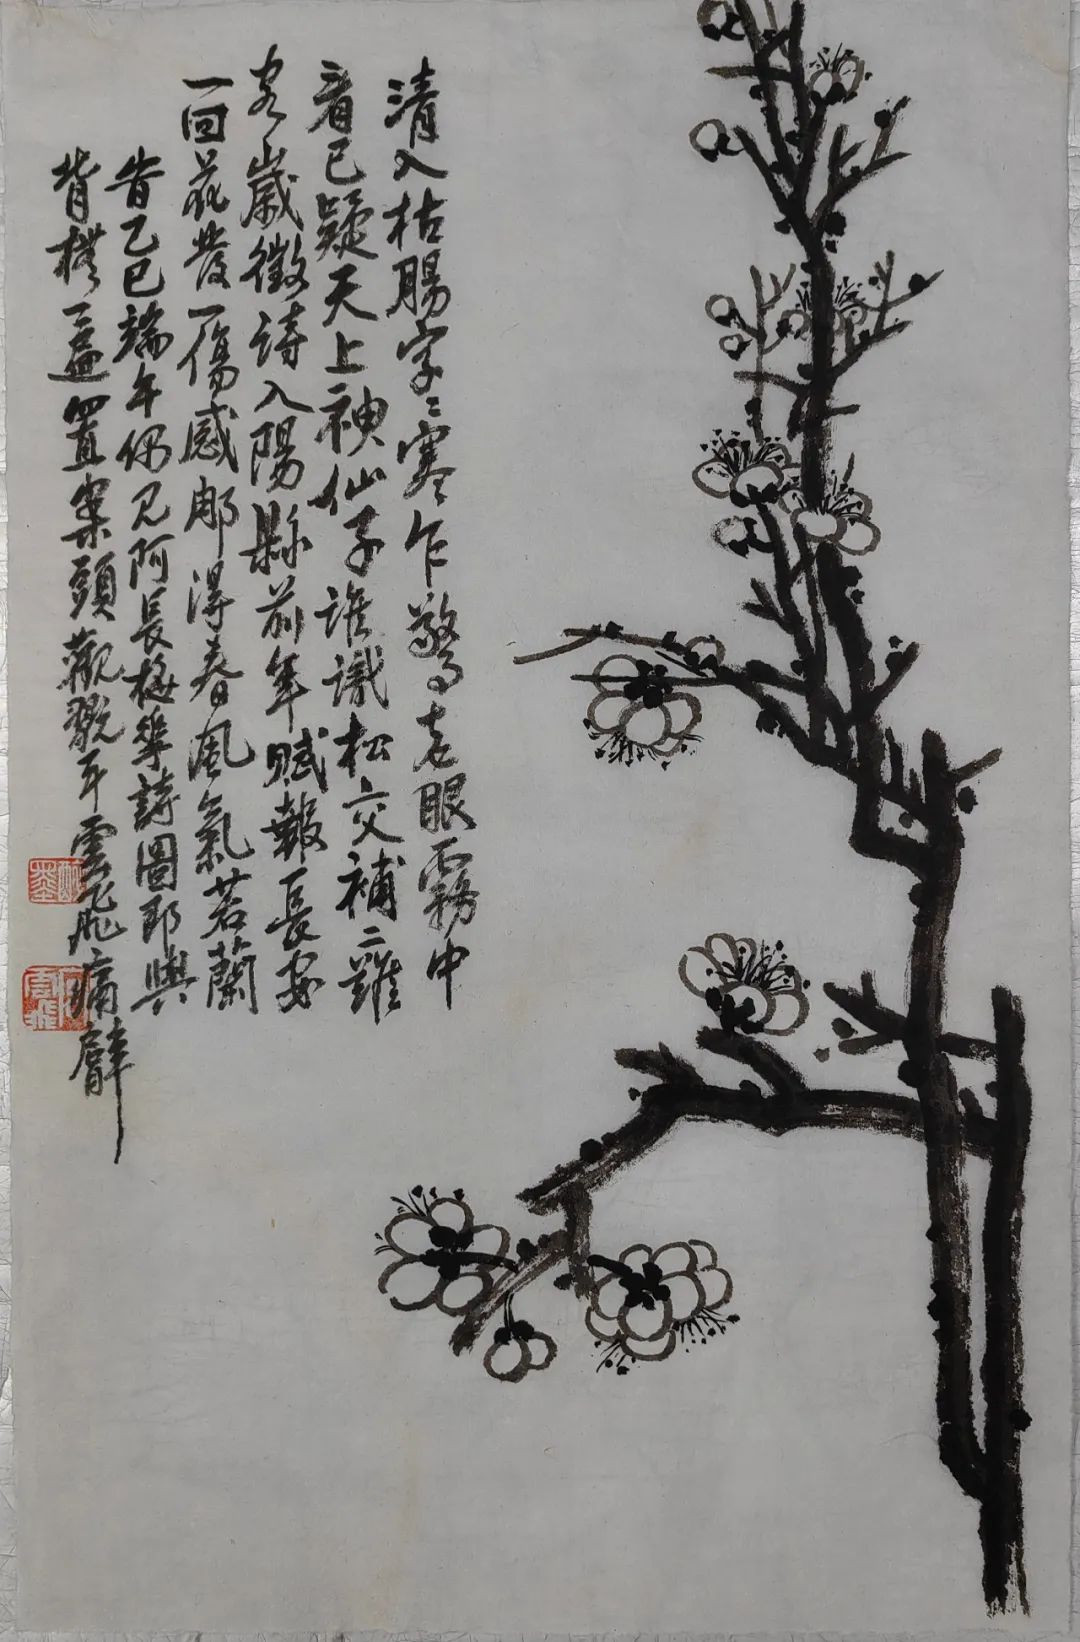 清入枯腸字〻寒乍驚老眼霧中
看已疑天上神仙子誰識松交補二難
客歲徵詩入陽縣前年賦報長安
一回花發一傷感那得春風氣若蘭
昔乙巳端午偶見阿長梅華詩圖即興
背橅一遍置案頭觀翫耳雲飛痛臂